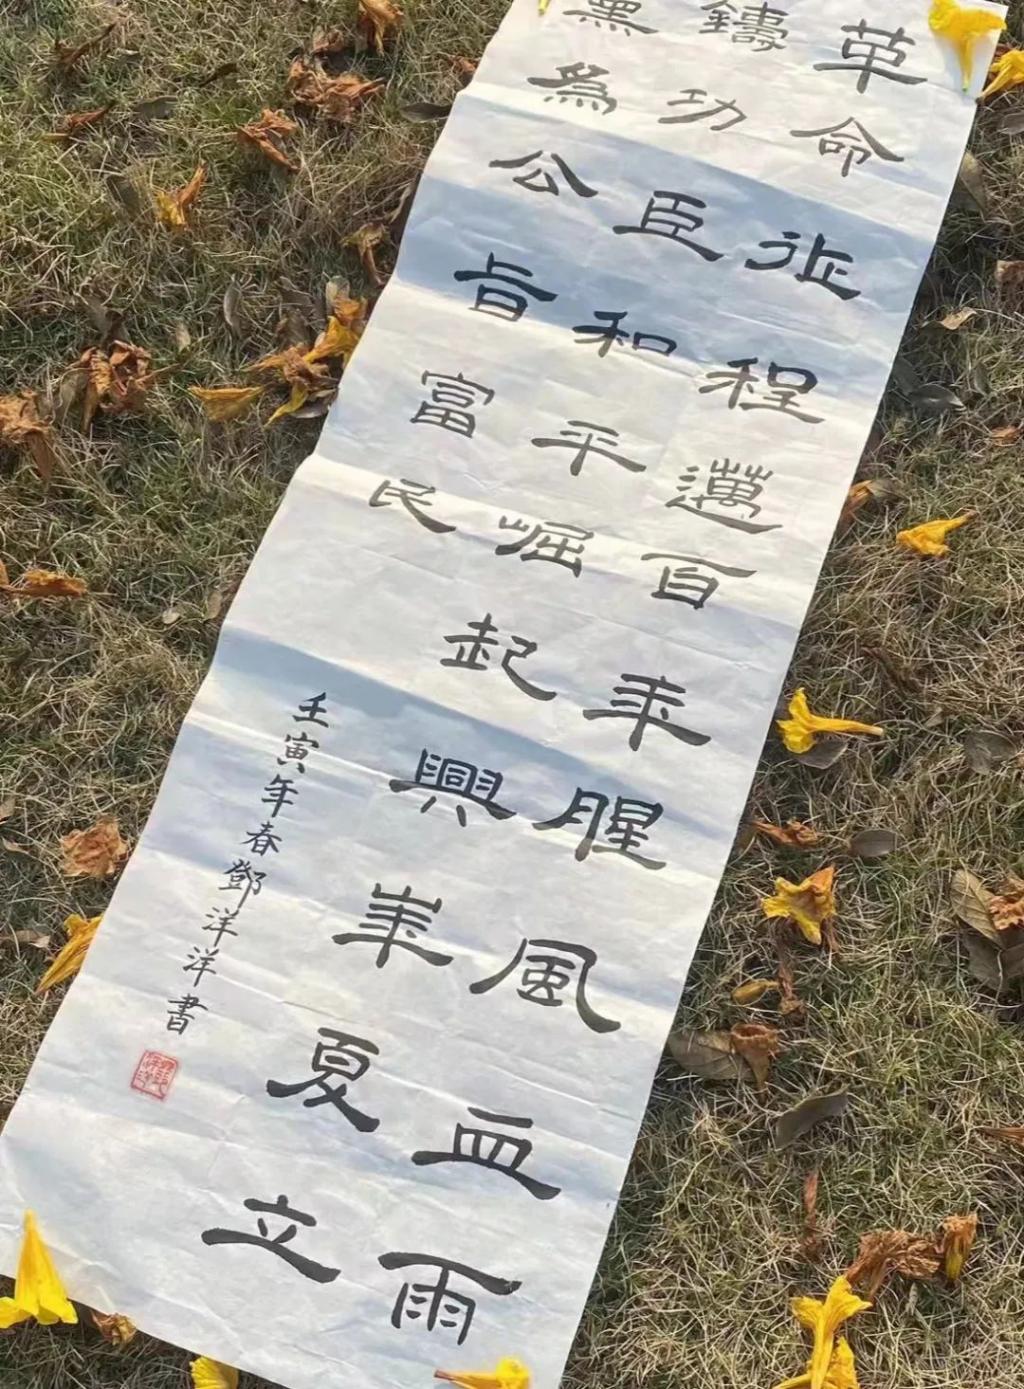 革命征程邁百年腥風血雨
鑄功臣和平崛起興華夏立
黨為公旨富民
壬寅年春鄧洋洋書